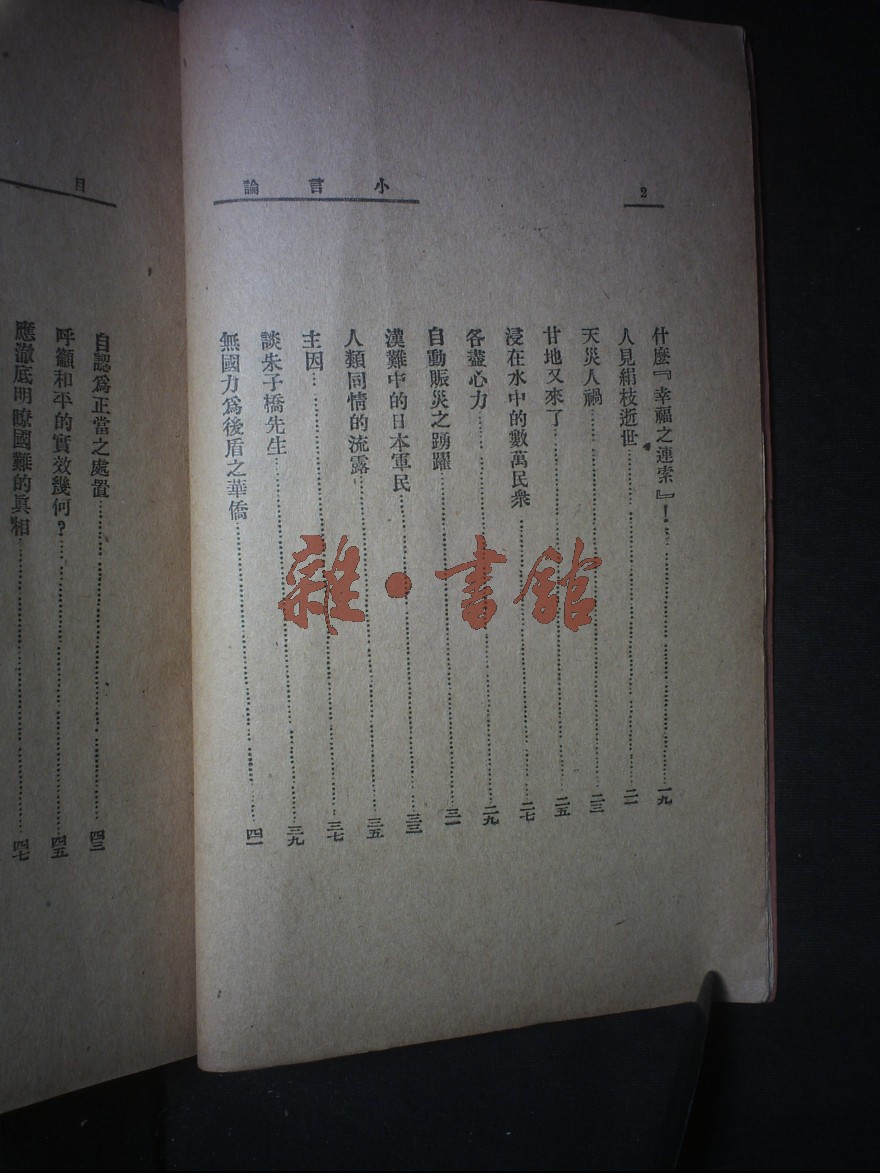 2
小言論
什麼『幸福之連索』！………一九
人見絹枝逝世………二一
天災人禍………二三
甘地又來了………二五
浸在水中的數萬民衆………二七
各盡心力………二九
自動賑災之踴躍………三一
漢難中的日本軍民………三三
人類同情的流露………三五
主因………三七
談朱子橋先生………三九
無國力爲後盾之華僑………四一
目
自認爲正當之處置………四三
呼籲和平的實效幾何？………四五
應澈底明瞭國難的眞相………四七
雜·書館